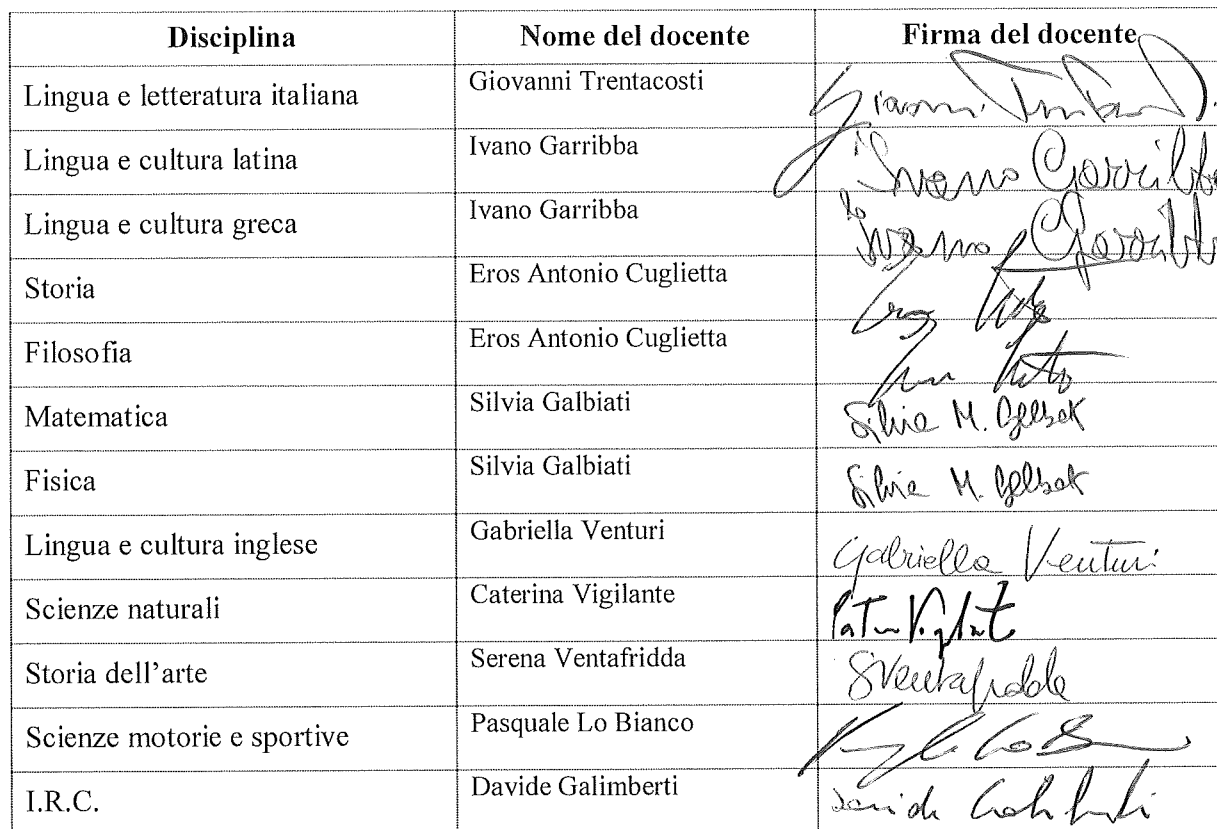 Disciplina Nome del docente Firma del docente
Lingua e letteratura italiana Giovanni Trentacosti
Lingua e cultura latina Ivano Garribba Ivano Garribba
Lingua e cultura greca Ivano Garribba Ivano Garribba
Storia Eros Antonio Cuglietta
Filosofia Eros Antonio Cuglietta
Matematica Silvia Galbiati Silvia M.
Fisica Silvia Galbiati Silvia M.
Lingua e cultura inglese Gabriella Venturi Gabriella Venturi
Scienze naturali Caterina Vigilante
Storia dell'arte Serena Ventafridda SVentafridda
Scienze motorie e sportive Pasquale Lo Bianco
I.R.C. Davide Galimberti Davide